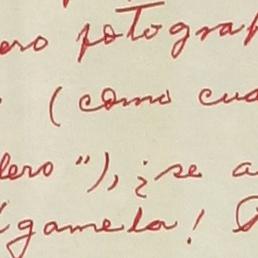 ero fotograf
(como cua
lero"), ¿se a
ígamela!